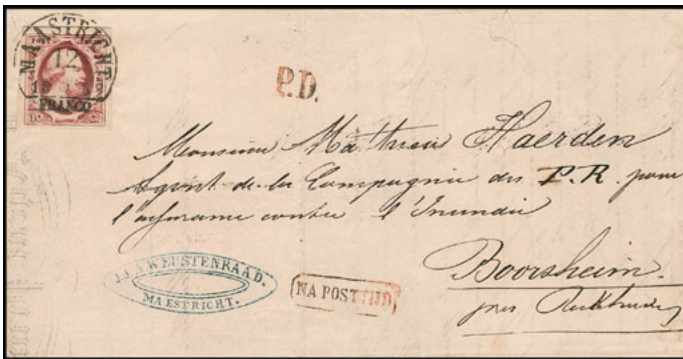 MAASTRICHT
12
FRANCO
P.D.
Monsieur Mathieu Haerden
Agent de la Compagnie des P.R. pour
l'assurance contre l'Incendie
Boorsheim.
près
J. J. WEUSTENRAAD.
MAESTRICHT.
NA POSTTIJD